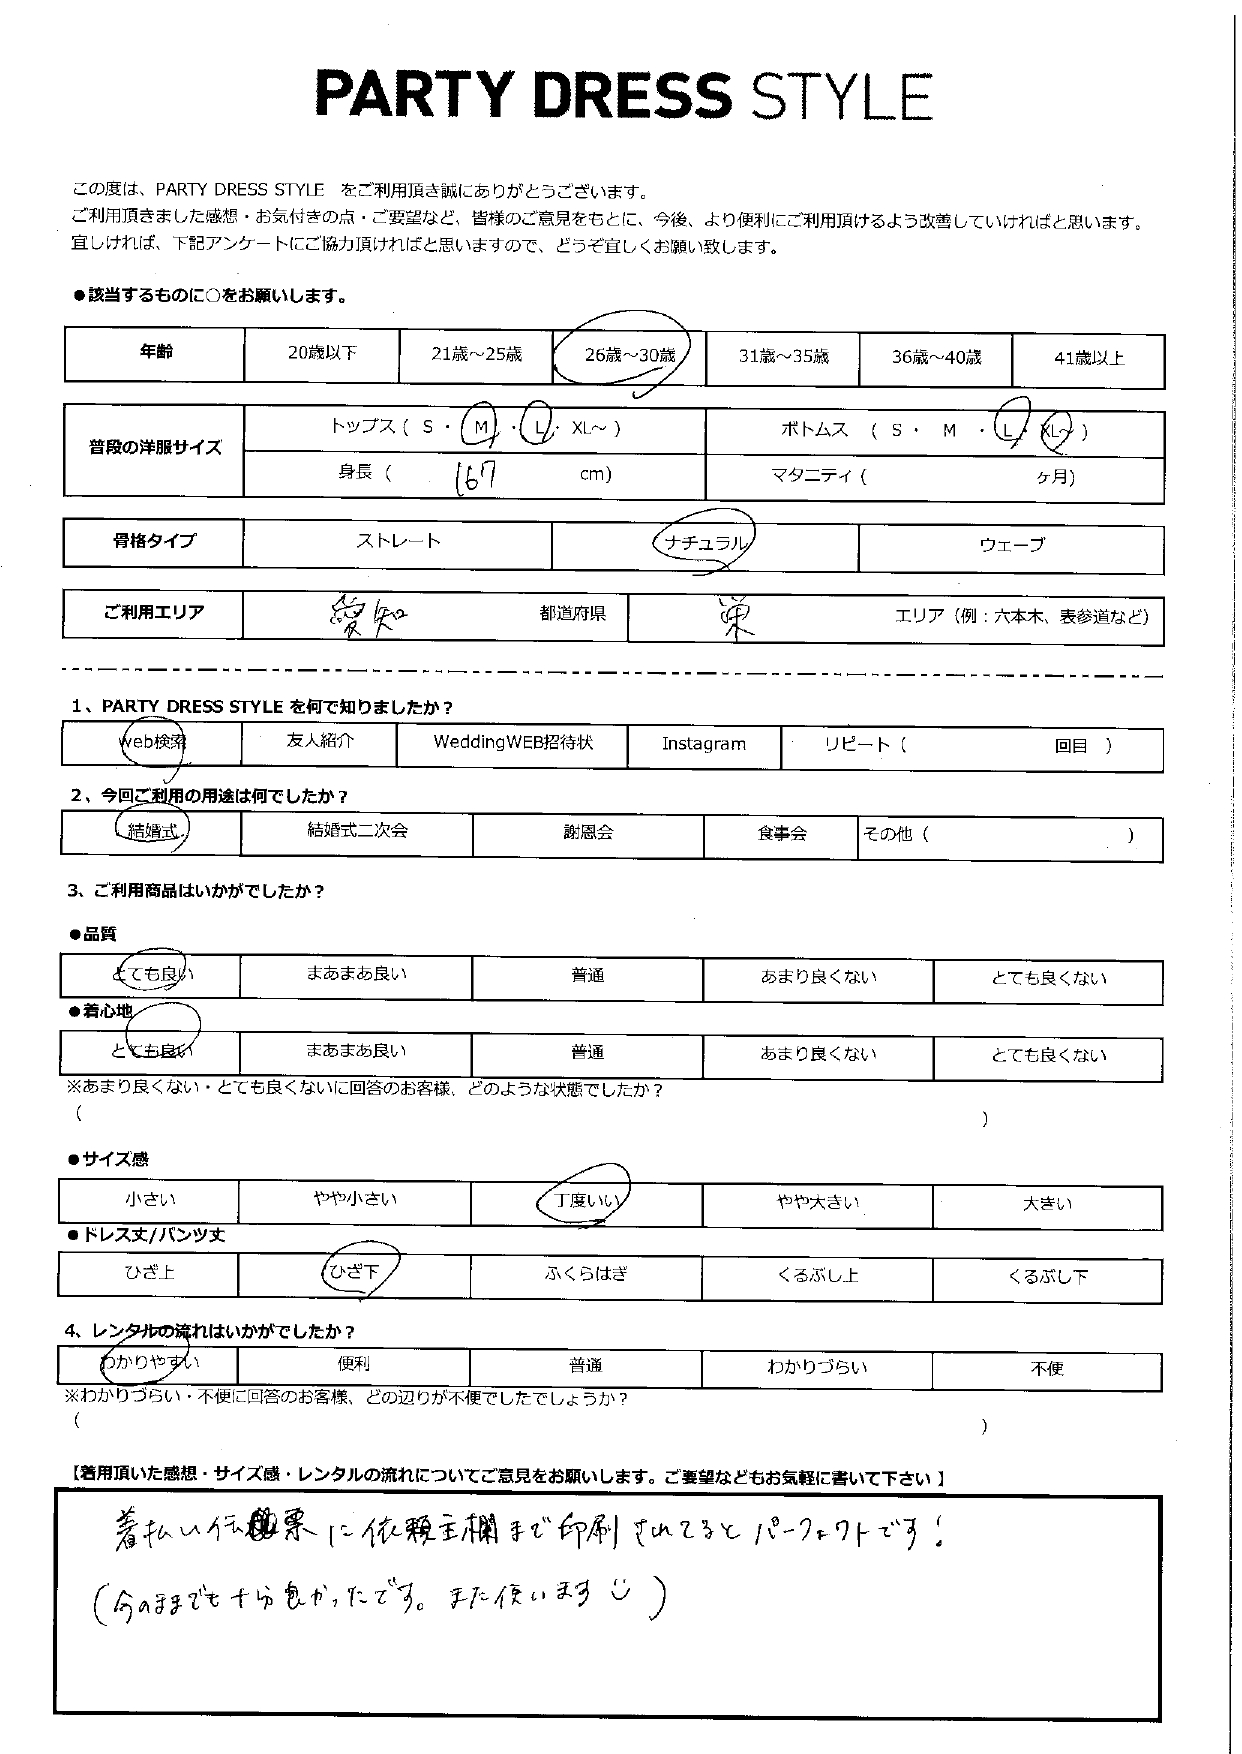 PARTY DRESS STYLE
この度は、PARTY DRESS STYLE をご利用頂き誠にありがとうございます。
ご利用頂きました感想・お気付きの点・ご要望など、皆様のご意見をもとに、今後、より便利にご利用頂けるよう改善していければと思います。
宜しければ、下記アンケートにご協力頂ければと思いますので、どうぞ宜しくお願い致します。
●該当するものに○をお願いします。
年齢 20歳以下 21歳～25歳 26歳～30歳 31歳～35歳 36歳～40歳 41歳以上
普段の洋服サイズ トップス ( S ・ M ・ L ・ XL～ ) ボトムス ( S ・ M ・ L ・ XL～ )
身長 ( 167 cm) マタニティ ( ヶ月)
骨格タイプ ストレート ナチュラル ウェーブ
ご利用エリア 愛知 都道府県 栄 エリア (例：六本木、表参道など)
1、PARTY DRESS STYLE を何で知りましたか？
web検索 友人紹介 WeddingWEB招待状 Instagram リピート ( 回目 )
2、今回ご利用の用途は何でしたか？
結婚式 結婚式二次会 謝恩会 食事会 その他 ( )
3、ご利用商品はいかがでしたか？
●品質
とても良い まあまあ良い 普通 あまり良くない とても良くない
●着心地
とても良い まあまあ良い 普通 あまり良くない とても良くない
※あまり良くない・とても良くないに回答のお客様、どのような状態でしたか？
( )
●サイズ感
小さい やや小さい 丁度いい やや大きい 大きい
●ドレス丈/パンツ丈
ひざ上 ひざ下 ふくらはぎ くるぶし上 くるぶし下
4、レンタルの流れはいかがでしたか？
わかりやすい 便利 普通 わかりづらい 不便
※わかりづらい・不便に回答のお客様、どの辺りが不便でしたでしょうか？
( )
【着用頂いた感想・サイズ感・レンタルの流れについてご意見をお願いします。ご要望などもお気軽に書いて下さい】
着払い伝票に依頼主欄まで印刷されてるとパーフェクトです！
(今のままでも十分良かったです。また使います )